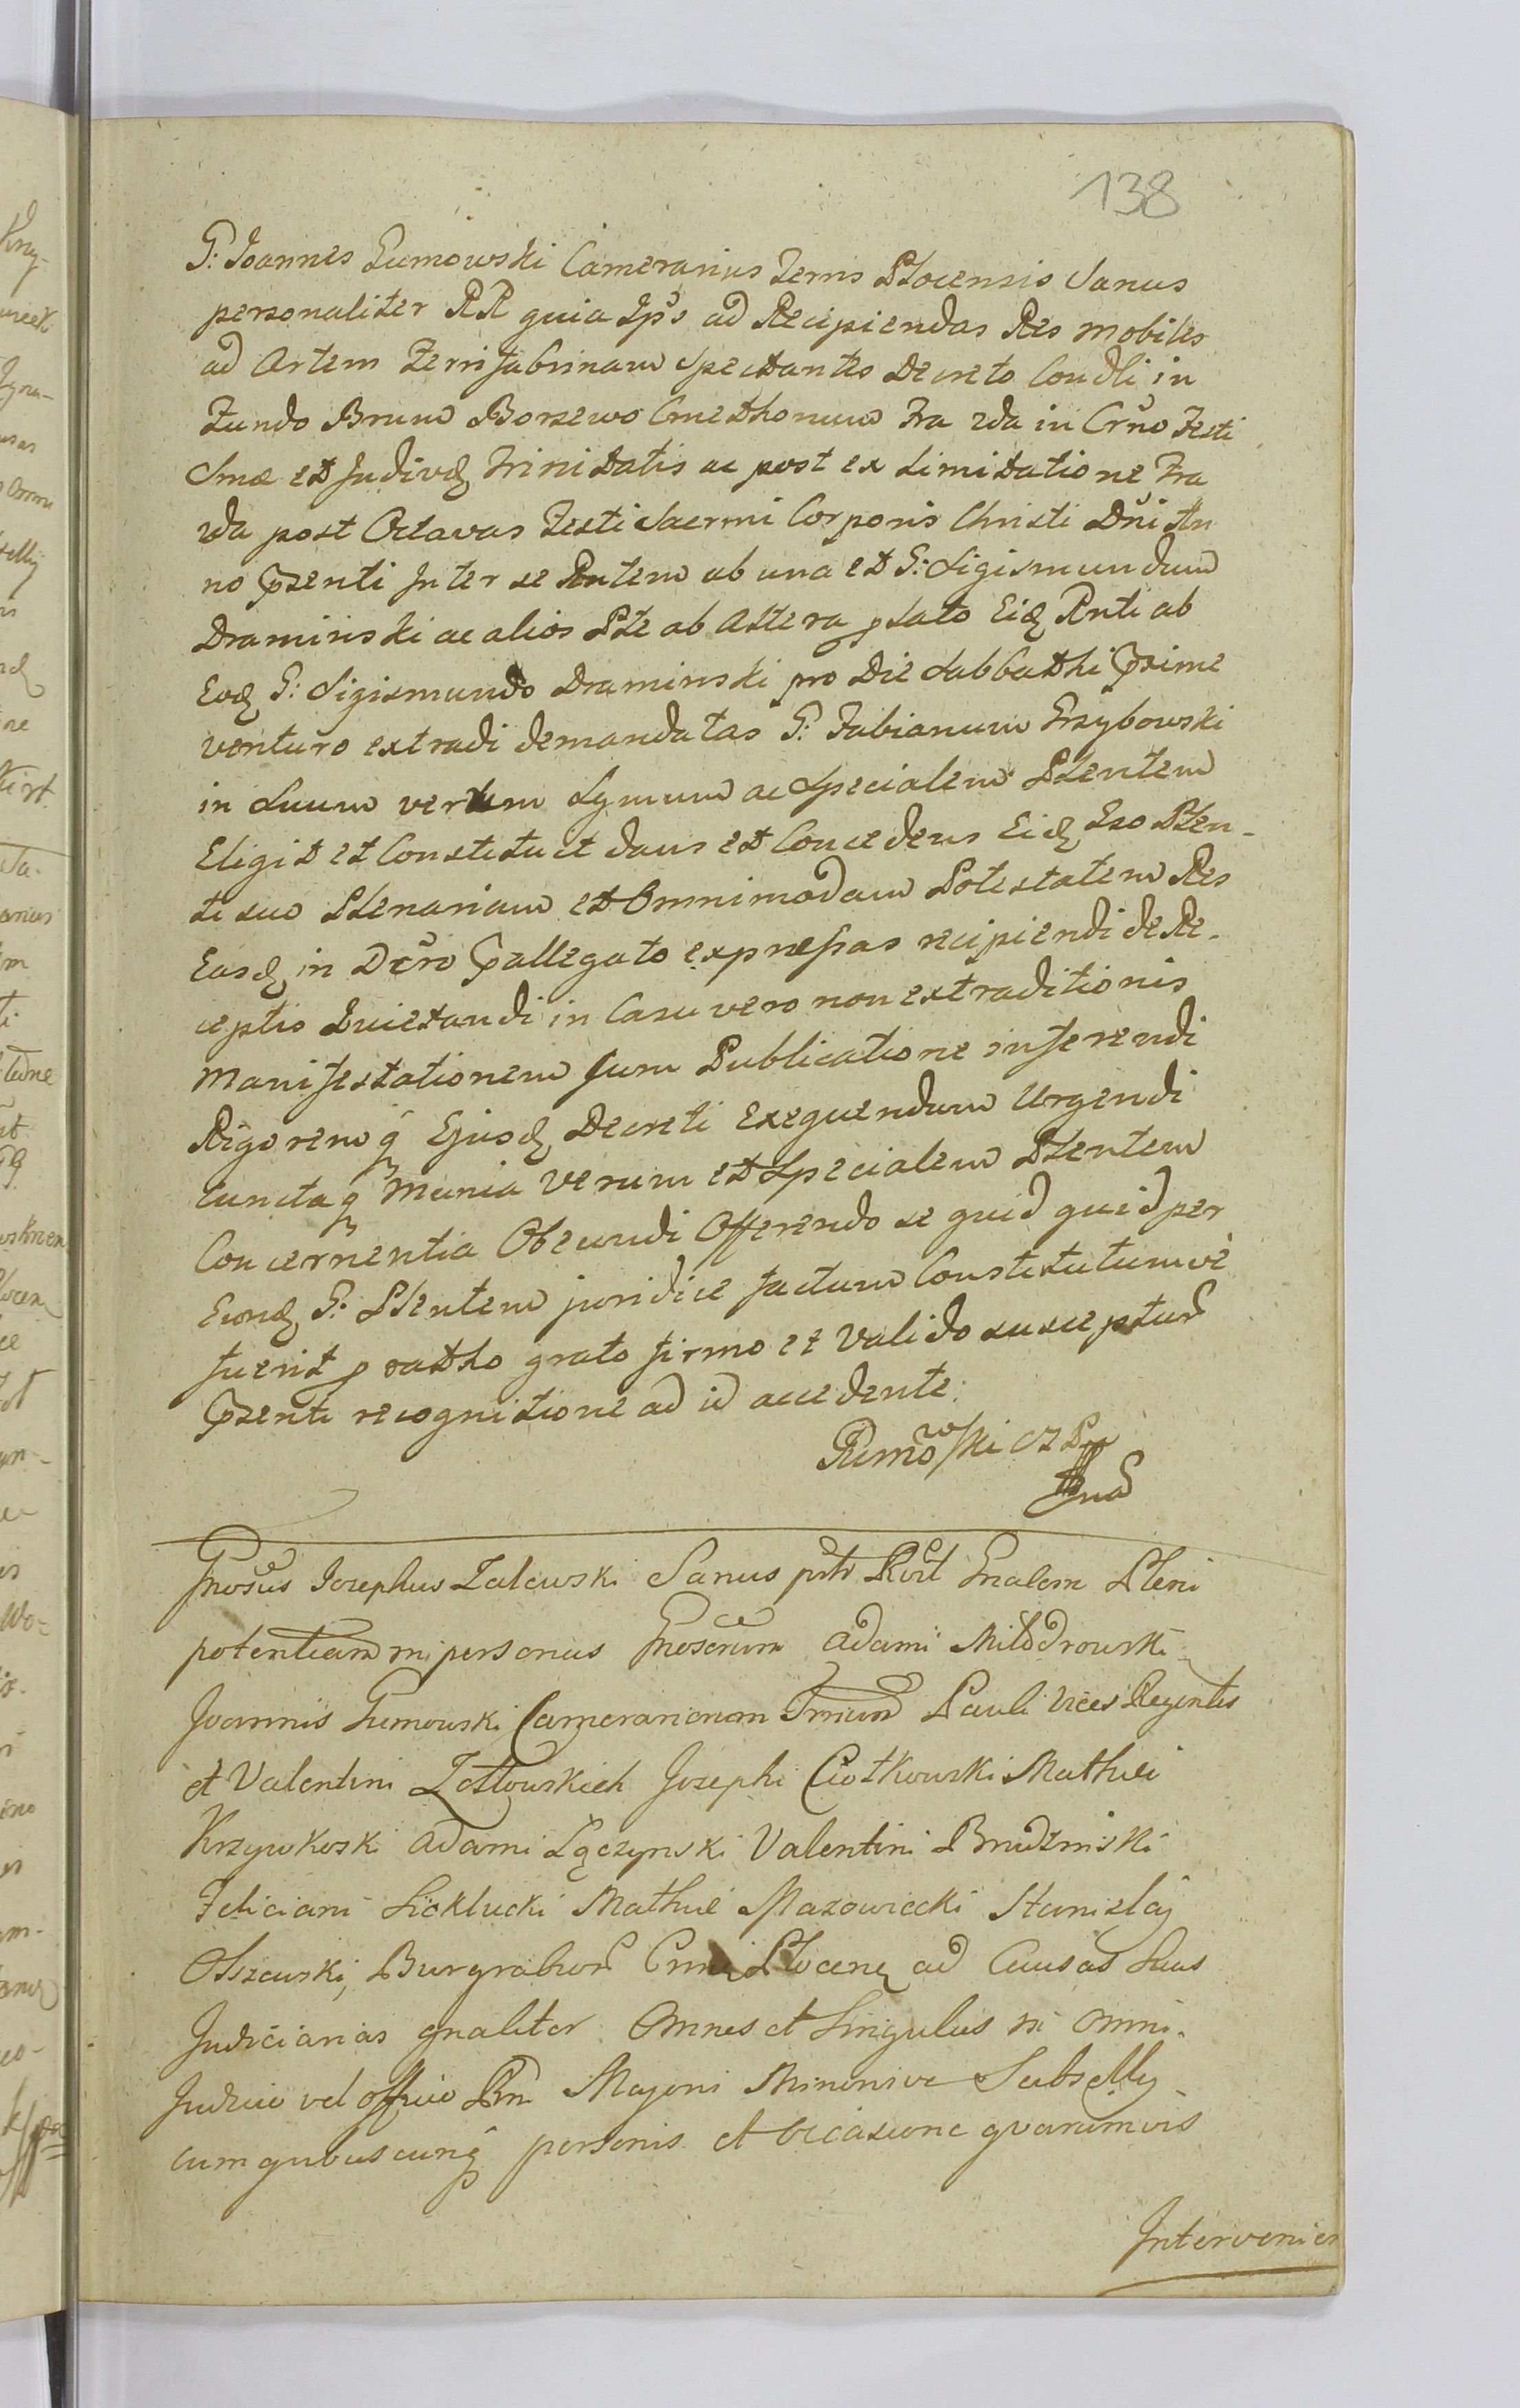 138
G: Joannes Gumowski Camerarius Terris Plocensis Sanus
personaliter RR quia Ips̃e ad Recipiendas Res mobiles
ad Artem Ferri fabrinam Spectantes Decreto Condli in
Fundo Bnrum Borzewo Cmethonum Fra 2da in Crño Festi
Smæ et Indivq Trinitatis ac post ex Limitatione Fra
2da post Octavas Festi Sacrmi Corporis Christi Dñi An
no p̃senti Inter se Rntem ab una et G: Sigismundum
Draminski ac alios Pte ab Altera p lato Eidq Rnti ab
Eodq G: Sigismundo Draminski pro Die Sabbathi p̃xime
venturo extradi demandatas G: Fabianum Grzybowski
in Suum verum Lgmum ac Specialem Pltentem
Eligit et Constituit dans et Concedens Eidq Gso Plten-
ti suo Plenariam et Omnimodam Potestatem Res
Easdq in Dcr̃o p̃allegato expressas recipiendi de Re-
ceptis Quietandi in Casu vero non extraditionis
Manifestationem Cum Publicatione inferendi
Rigoremq̃ Ejusdq Decreti Exequendum Urgendi
Cunctaq̃ Munia Verum et Specialem Pltentem
Concernentia Obeundi Offerendo se quid quid per
Eundq G: Pltentem juridice factum Constitutumve
fuerit p ratho grato firmo et Valido suscepturũ
p̃senti recognitione ad id accedente:
Gumowski CZP

Gnosus Josephus Zalewski Sanus psltr Rcit Gnalem Pleni
potentiam in personas Gnosorum Adami Miłodrowski
Joannis Gumowski Camerariorum Trrium Pauli Vices Regentis
et Valentini Zottowskich Josephi Ciotkowski Mathei
Krzywkoski Adami Łączynski Valentini Brudzinski
Feliciani Sieklucki Mathei Mazowiecki Stanislai
Olszewski, Burgrabior̃ Plocenq ad Causas Suas
Judiciarias gnaliter Omnes et Singulas in omni
Judicio vel officio Rni Majori Minorive Subsellij
cum quibuscunq̃ personis et occasione quarumvis
Intervenien